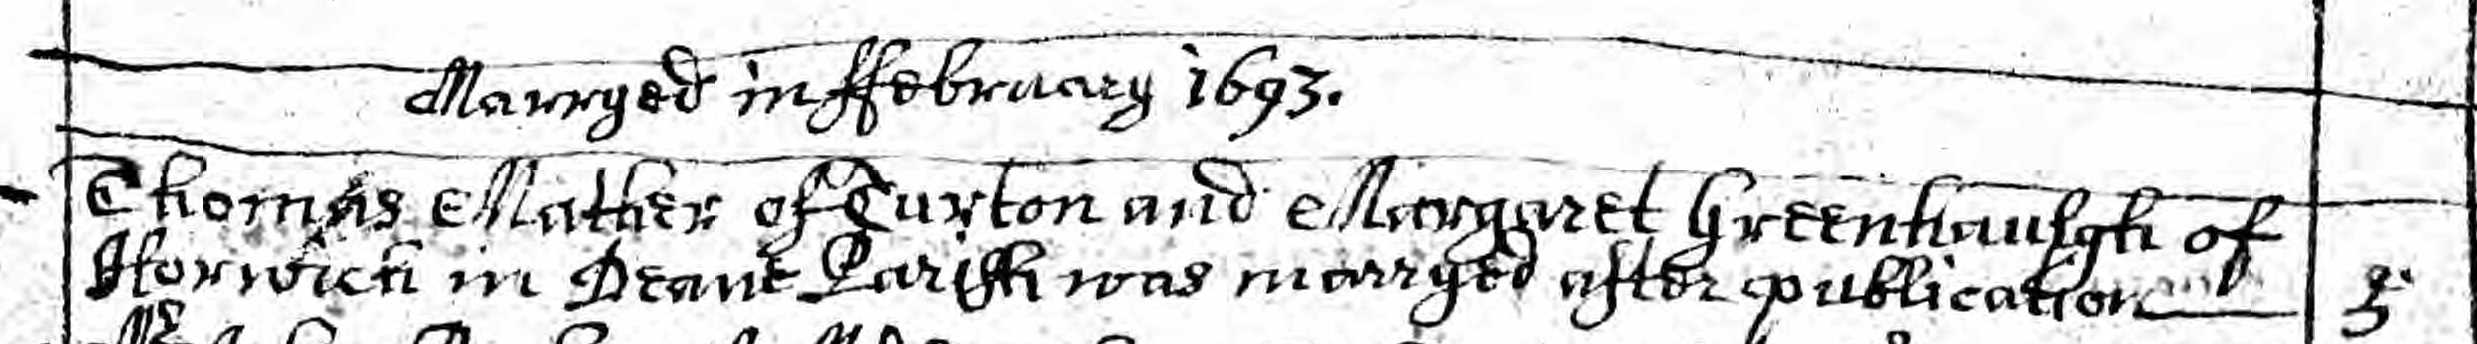 Marryed in ffebruary 1693.
Thomas Mather of Turton and Margaret Greenhaulgh of
Horwich in Deane Parish was marryed after publication 3